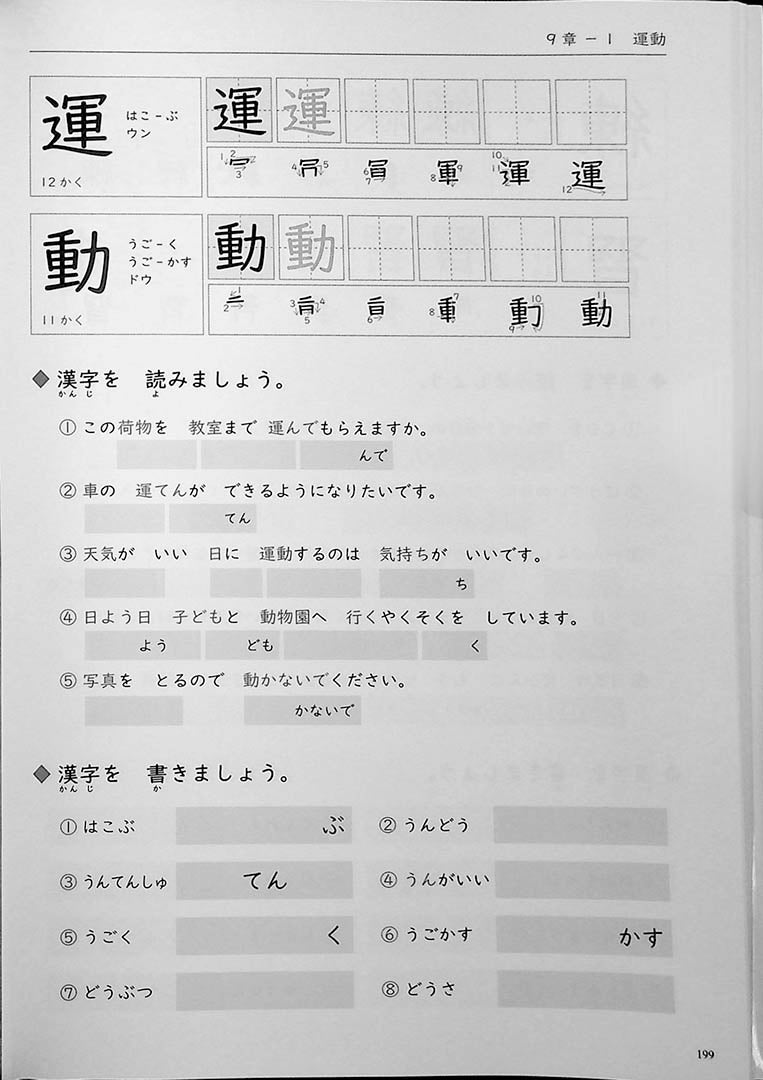 9章－1 運動
運 はこ－ぶ 運 運
ウン
1 2 3 4 5 6 7 8 9 10 11 12 運
12かく
動 うご－く 動 動
うご－かす
ドウ
1 2 3 4 5 6 7 8 9 10 11 動
11かく
◆漢字を 読みましょう。
かん じ よ
①この荷物を 教室まで 運んでもらえますか。
んで
②車の 運てんが できるようになりたいです。
てん
③天気が いい 日に 運動するのは 気持ちが いいです。
ち
④日よう日 子どもと 動物園へ 行くやくそくを しています。
よう ども く
⑤写真を とるので 動かないでください。
かないで
◆漢字を 書きましょう。
かん じ か
①はこぶ ぶ ②うんどう
③うんてんしゅ てん ④うんがいい
⑤うごく く ⑥うごかす かす
⑦どうぶつ ⑧どうさ
199